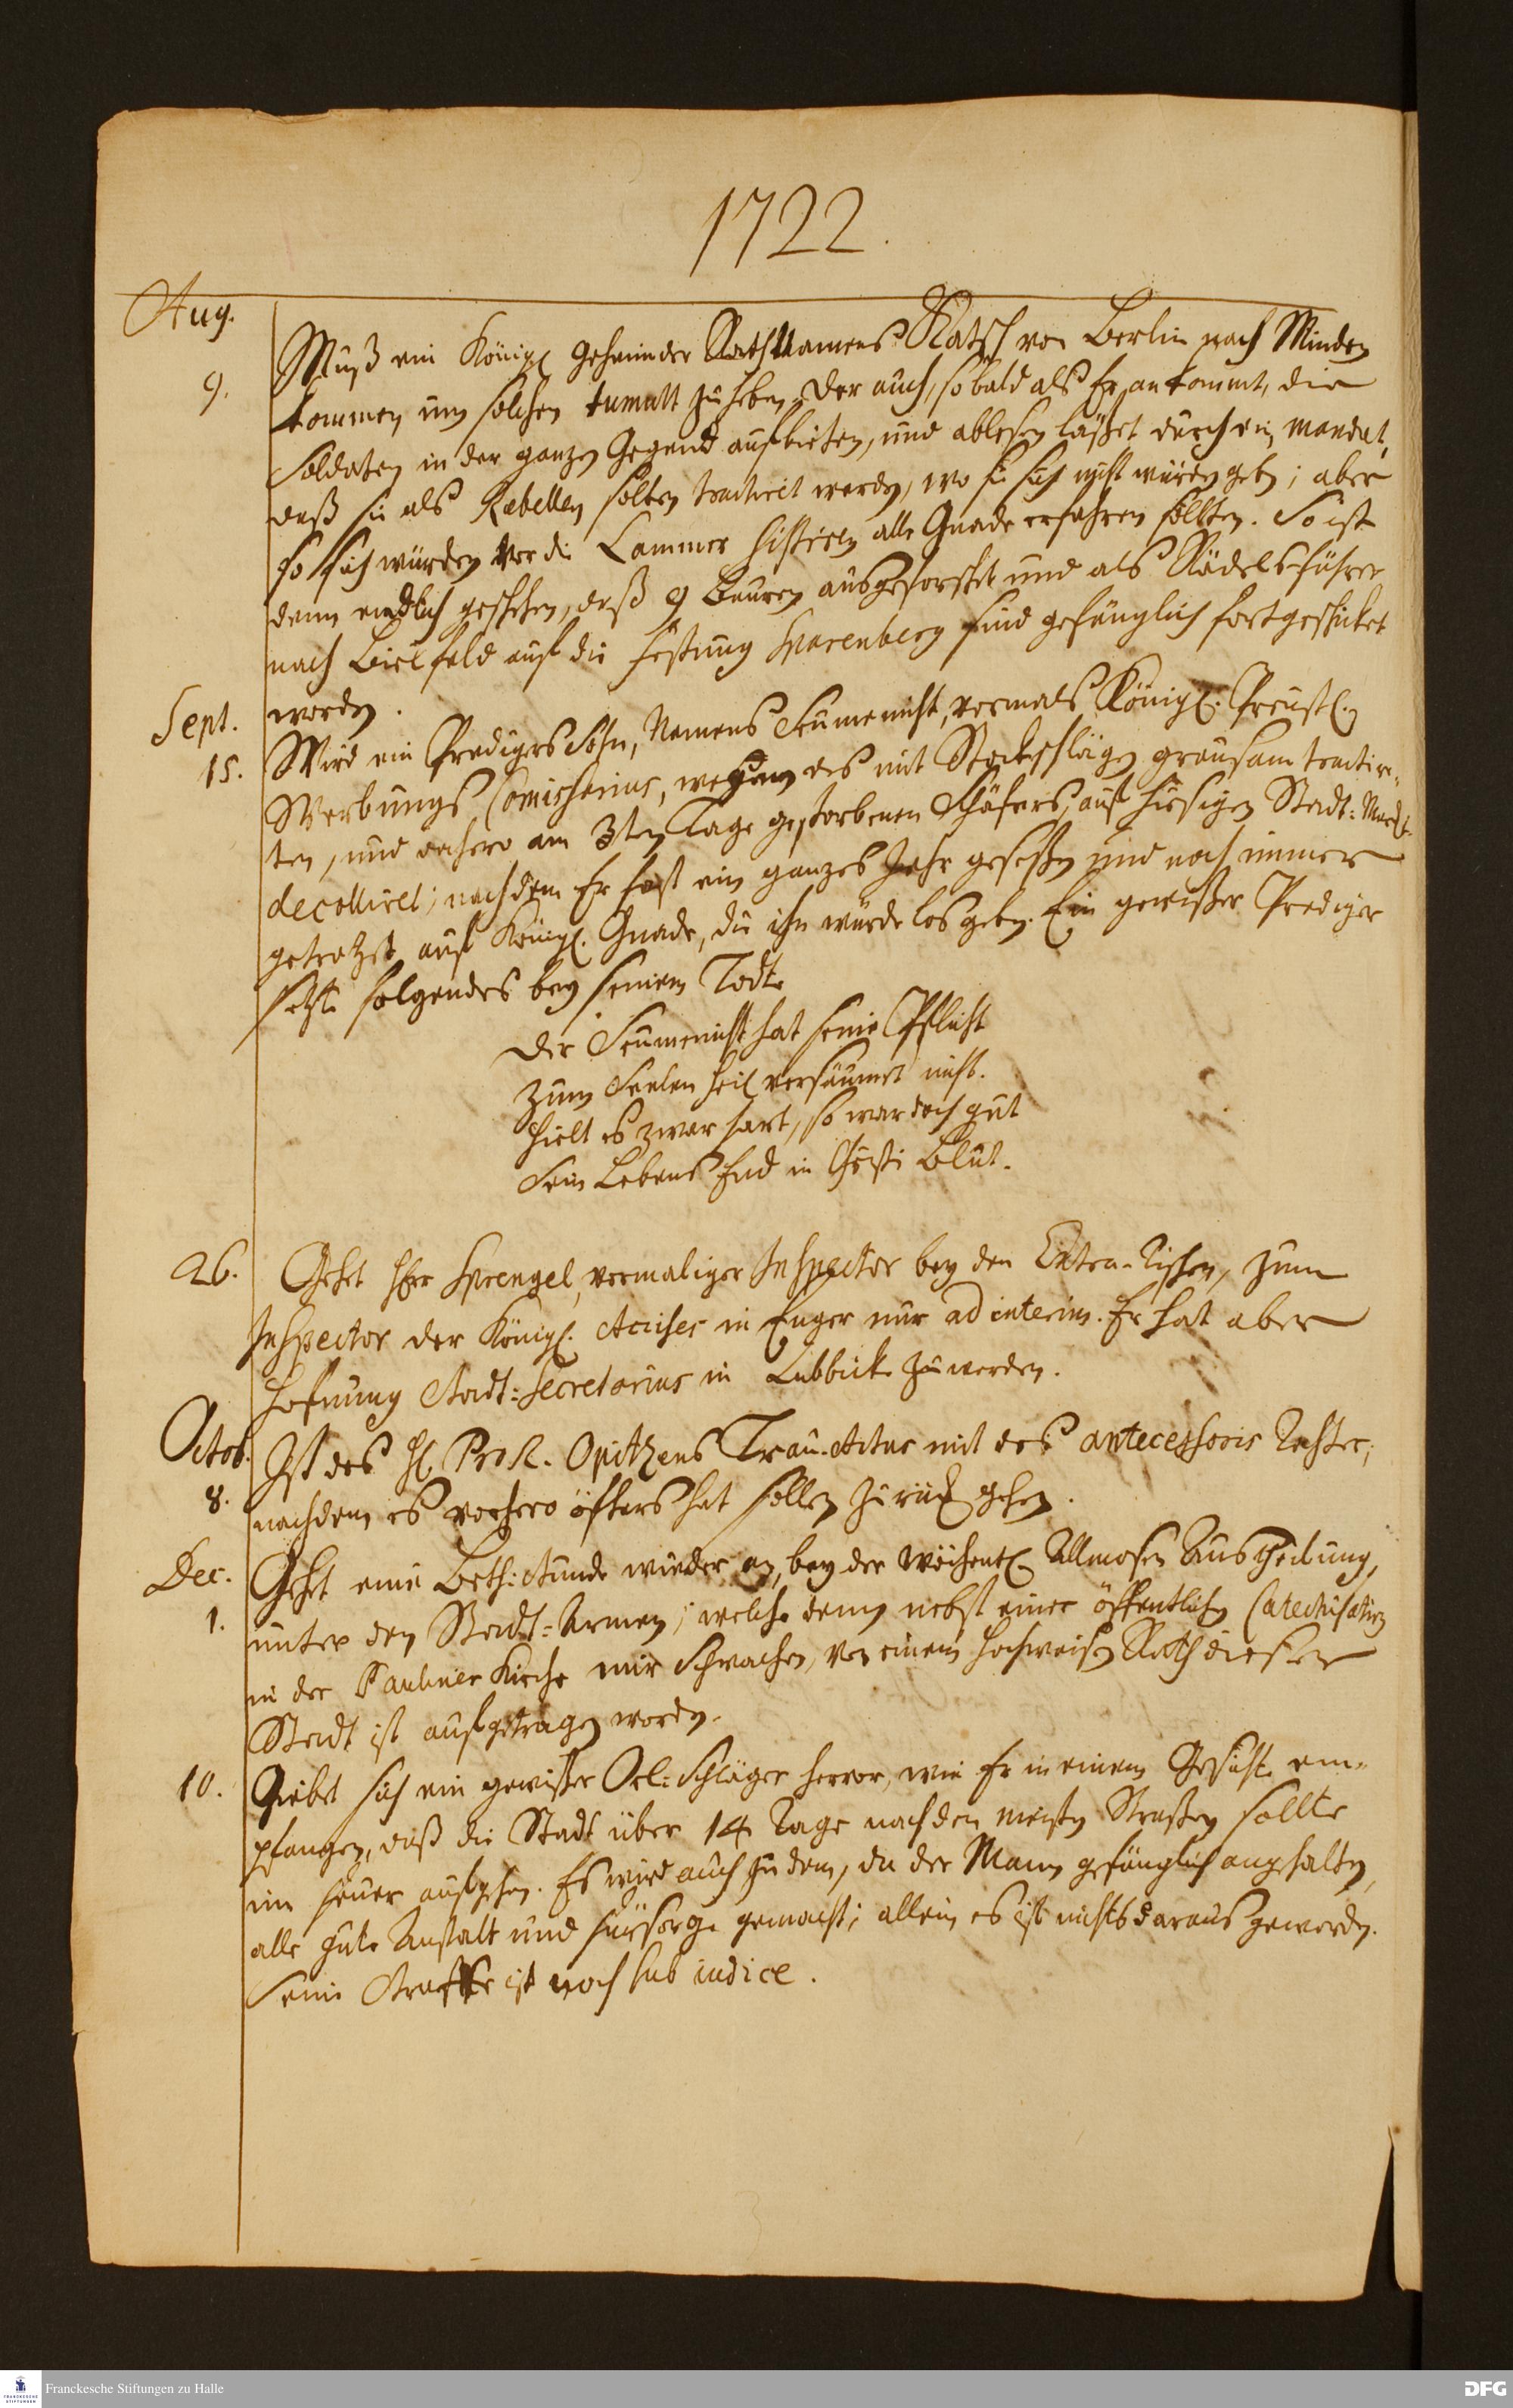 1722.
Aug.
9.
Muß ein Königl. Geheimder Rath Namens Katsch von Berlin nach Minden
kommen, um solchen tumult zu heben, der auch, so bald als Er ankommt, die
Soldaten in der ganzen Gegend aufbieten, und ablesen läßet durch ein Mandat,
daß sie als Rebellen solten tractirt werden, wo sie sich nicht würden geben; aber
so sich würden vor die Cammer sistiren alle Gnade erfahren sollten. So ist
denn endlich geschehen, daß 9 Bauren ausgeforschet und als Rädelsführer
nach Bielfeld auf die Festung Sparenberg sind gefänglich fortgeschicket
worden.
Sept.
15.
Wird ein Predigers Sohn, Namens Seumenicht, vormals Königl. Preusl.
Werbungs Comissarius, wegen des mit Stockschlägen grausam tractire-
ten, und dahero am 3ten Tage gestorbenen Schäfers, auf hiesigen Stadt-Marckt
decolliret; nachdem Er fast ein ganzes Jahr gesessen und noch immer
getrotzet auf Königl. Gnade, die ihn würde los geben. Ein gewißer Prediger
setzte folgendes bey seinem Todte
Der Seumenicht hat seine Pflicht
Zum Seelen Heil versäumet nicht.
Hielt es zwar hart, so war doch gut
Sein Lebens End in Christi Blut.
26.
Gehet Herr Sprengel, vormaliger Inspector bey den Extra-Tischen, zum
Inspector der Königl. Accises in Enger nur ad interim. Er hat aber
Hofnung Stadt-Secretarius in Lubbicke zu werden.
Octob.
8.
Ist des H. ProR. Opitzens Trau-Actus mit des antecessoris Tochter,
nachdem es vorhero öfters hat sollen zurück gehen.
Dec.
1.
Gehet eine Beth-Stunde wieder an, bey der wöchentl. Allmosen Austheilung,
unter den Stadt-Armen; welche denn nebst einer öffentlichen Catechisation
in der Pauliner Kirche mir Schwachen, von einem Hochweisen Rath dieser
Stadt ist aufgetragen worden.
10.
Giebet sich ein gewißer Oel-Schläger hervor, wie Er in einem Gesichte em-
pfangen, daß die Stadt über 14 Tage nach den meisten Straßen sollte
im Feuer aufgehen. Es wird auch zudem, da der Mann gefänglich angehalten,
alle gute Anstalt und Fürsorge gemacht; allein es ist nichts daraus geworden.
Seine Straffe ist noch sub iudice.
Franckesche Stiftungen zu Halle
DFG